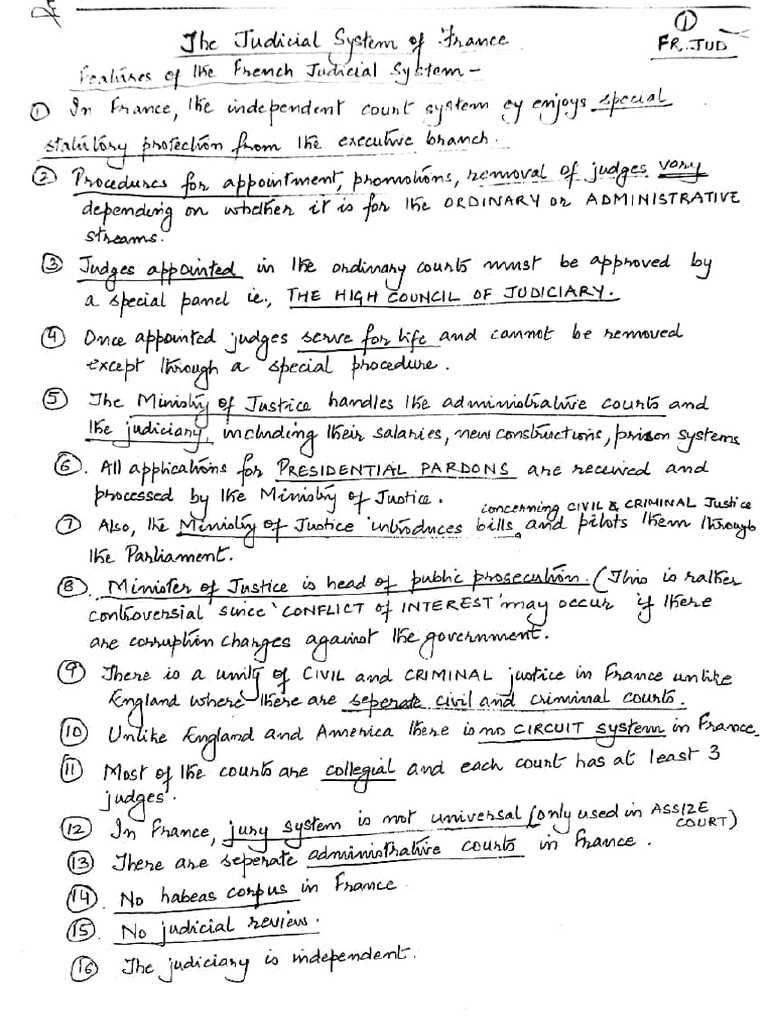 ①
The Judicial System of France
FR. JUD
Features of the French Judicial System –
① In France, the independent court system enjoys special
statutory protection from the executive branch.
② Procedures for appointment, promotions, removal of judges vary
depending on whether it is for the ORDINARY or ADMINISTRATIVE
streams.
③ Judges appointed in the ordinary courts must be approved by
a special panel ie., THE HIGH COUNCIL OF JUDICIARY.
④ Once appointed judges serve for life and cannot be removed
except through a special procedure.
⑤ The Ministry of Justice handles the administrative courts and
the judiciary, including their salaries, new constructions, prison systems
⑥. All applications for PRESIDENTIAL PARDONS are received and
processed by the Ministry of Justice.
concerning CIVIL & CRIMINAL Justice
⑦ Also, the Ministry of Justice introduces bills and pilots them through
the Parliament.
⑧. Minister of Justice is head of public prosecution. (This is rather
controversial since 'CONFLICT OF INTEREST' may occur if there
are corruption charges against the government.
⑨ There is a unity of CIVIL and CRIMINAL justice in France unlike
England where there are seperate civil and criminal courts.
⑩ Unlike England and America there is no CIRCUIT system in France
⑪ Most of the courts are collegial and each court has at least 3
judges.
⑫ In France, jury system is not universal (only used in ASSIZE
COURT)
⑬ There are seperate administrative courts in France.
⑭ No habeas corpus in France.
⑮. No judicial review.
⑯ The judiciary is independent.